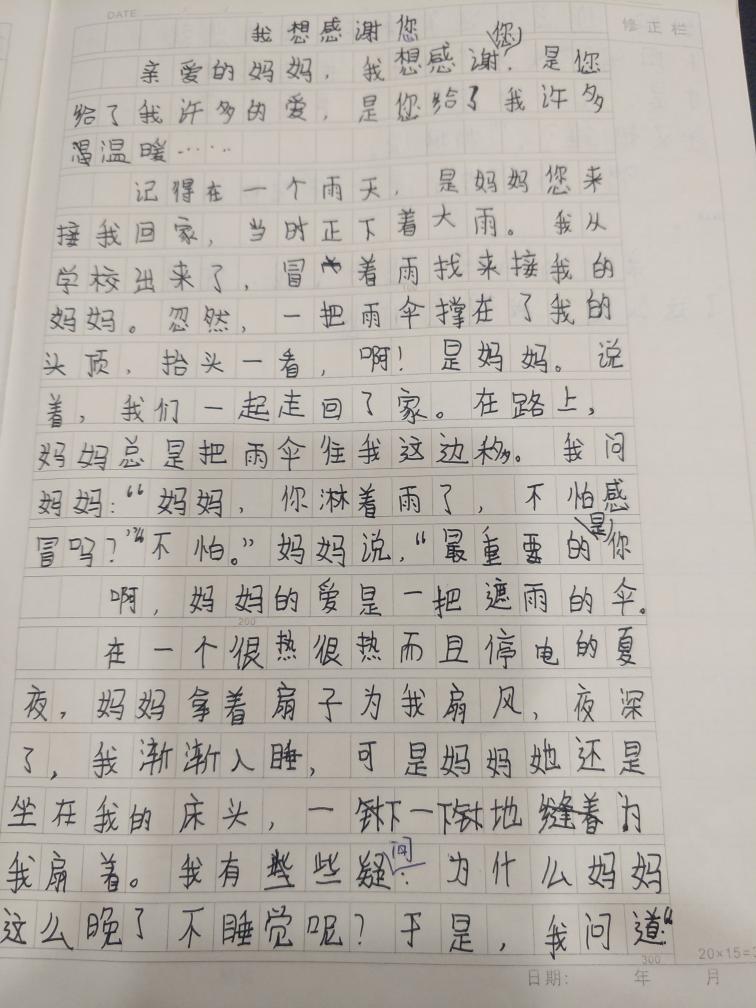 DATE
修正栏
我想感谢您
亲爱的妈妈，我想感谢您！是您
给了我许多的爱，是您给了我许多
温暖……
记得在一个雨天，是妈妈您来
接我回家，当时正下着大雨。我从
学校出来了，冒着雨找来接我的
妈妈。忽然，一把雨伞撑在了我的
头顶，抬头一看，啊！是妈妈。说
着，我们一起走回了家。在路上，
妈妈总是把雨伞往我这边移。我问
妈妈：“妈妈，你淋着雨了，不怕感
冒吗？”“不怕。”妈妈说，“最重要的是你
啊，妈妈的爱是一把遮雨的伞。
200
在一个很热很热而且停电的夏
夜，妈妈拿着扇子为我扇风，夜深
了，我渐渐入睡，可是妈妈她还是
坐在我的床头，一下一下地为
我扇着。我有些疑问：为什么妈妈
这么晚了不睡觉呢？于是，我问道“
300
20×15=3
日期： 年 月